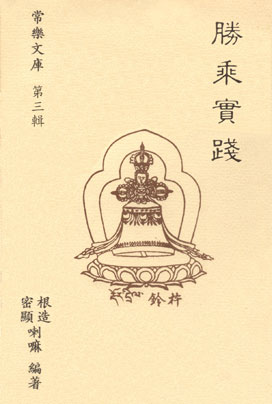 勝乘實踐
常樂文庫 第三輯
鈴杵
根造
密顯 喇嘛 編著